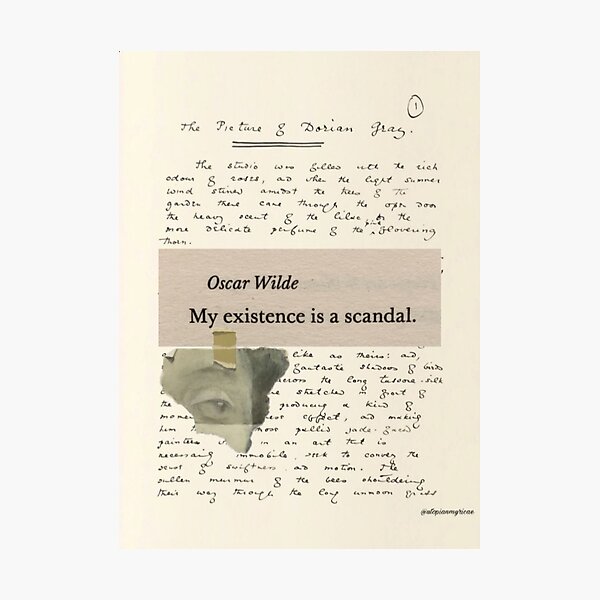 1
The Picture of Dorian Gray.
The studio was filled with the rich
odour of roses, and when the light summer
wind stirred amidst the trees of the
garden there came through the open door
the heavy scent of the lilac, or the
more delicate perfume of the pink flowering
thorn.
Oscar Wilde
My existence is a scandal.
like as theirs: and,
fantastic shadows of birds
across the long tussore-silk
stretched in front of
the producing a kind of
momen effect, and making
him those pallid jade-faced
painters in an art that is
necessarily immobile, seek to convey the
sense of swiftness and motion. The
sullen murmur of the bees shouldering
their way through the long unmown grass
@utopianmyricae